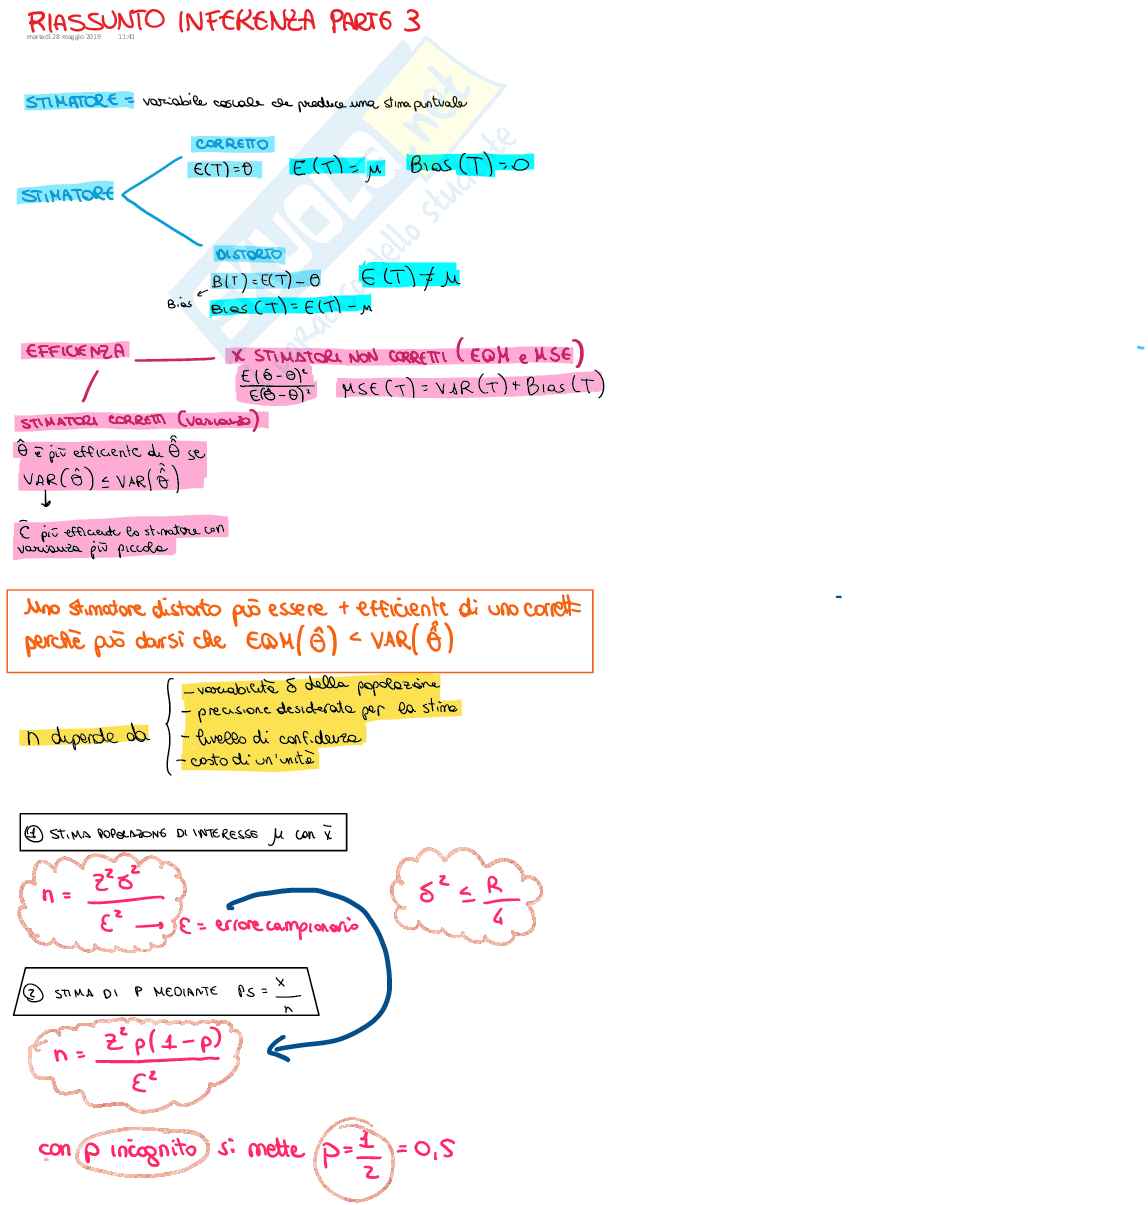 RIASSUNTO INFERENZA PARTE 3
martedì 28 maggio 2019 11:41
STIMATORE = variabile casuale che produce una stima puntuale
CORRETTO
E(T)=θ E(T)=μ Bias(T)=0
STIMATORE
DISTORTO
B(T)=E(T)-θ E(T)≠μ
Bias
Bias(T)=E(T)-μ
EFFICIENZA
X STIMATORI NON CORRETTI (EQM e MSE)
E(θ̂-θ)²
E(θ̂-θ)²
MSE(T)=VAR(T)+Bias(T)
STIMATORI CORRETTI (varianza)
θ̂ è più efficiente di θ̂̂ se
VAR(θ̂) ≤ VAR(θ̂̂)
↓
È più efficiente lo stimatore con
varianza più piccola
Uno stimatore distorto può essere + efficiente di uno corrett
perchè può darsi che EQM(θ̂) < VAR(θ̂̂)
- variabilità δ della popolazione
- precisione desiderata per la stima
n dipende da
- livello di confidenza
- costo di un'unità
1 STIMA POPOLAZIONE DI INTERESSE μ con x̄
n = Z²δ²
ε² → ε = errore campionario
δ² ≤ R
4
2 STIMA DI P MEDIANTE Ps = x
n
n = Z²p(1-p)
ε²
con p incognito si mette p=1/2=0,5
SKUOLA.net